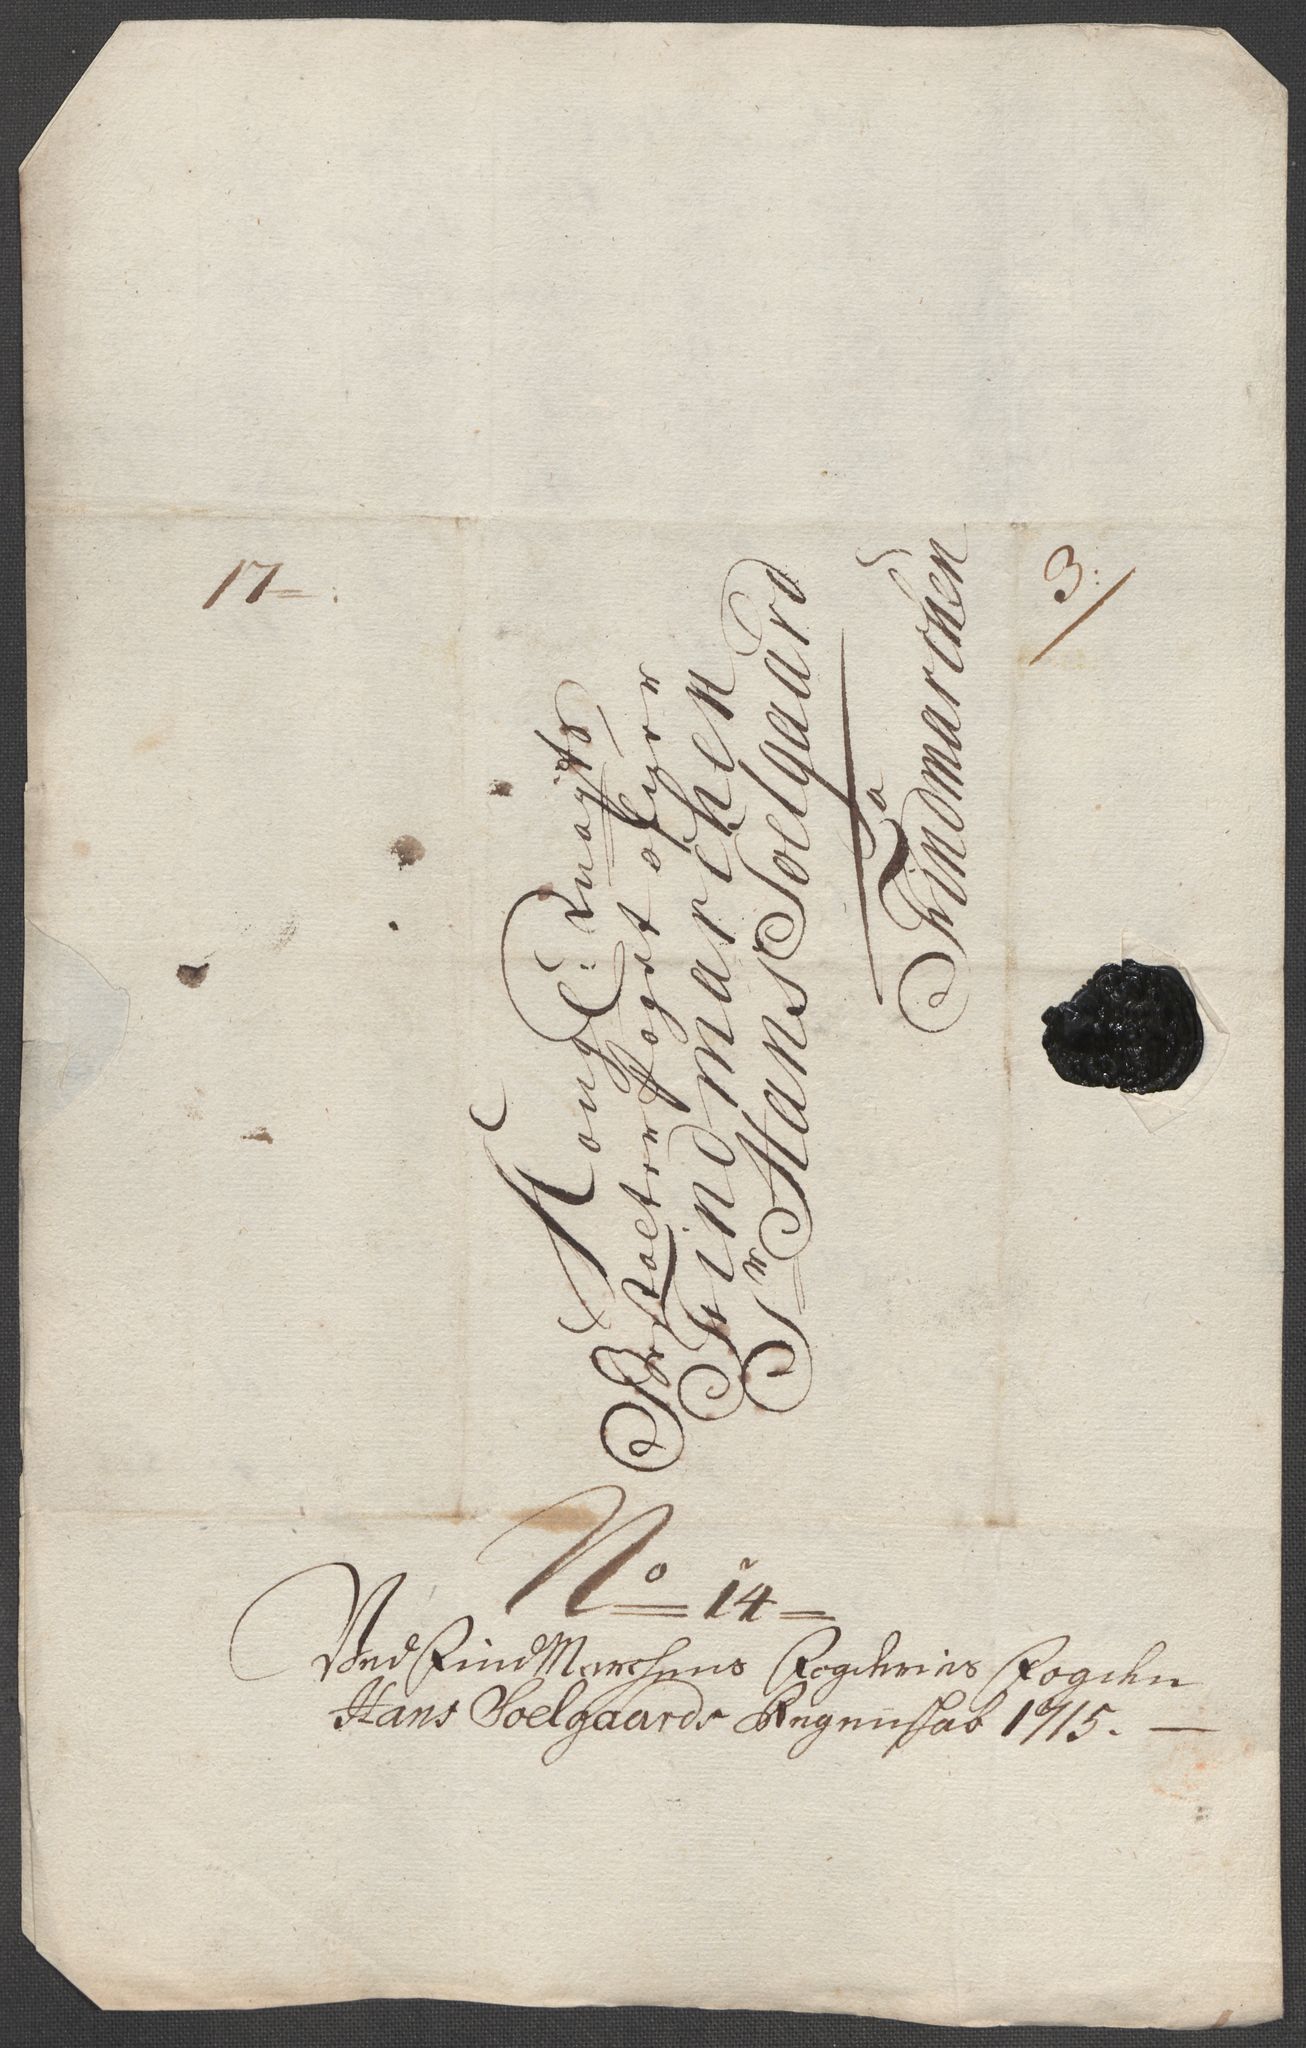 17
Kongl: Mayts
Velbetroet foget ofver
Findmarchen
Sr Hans Soelgaard
a
Findmarchen
3:
No 14
Ved FindMarchens Fogderies Fogden
Hans Soelgaards Regenskab 1715.